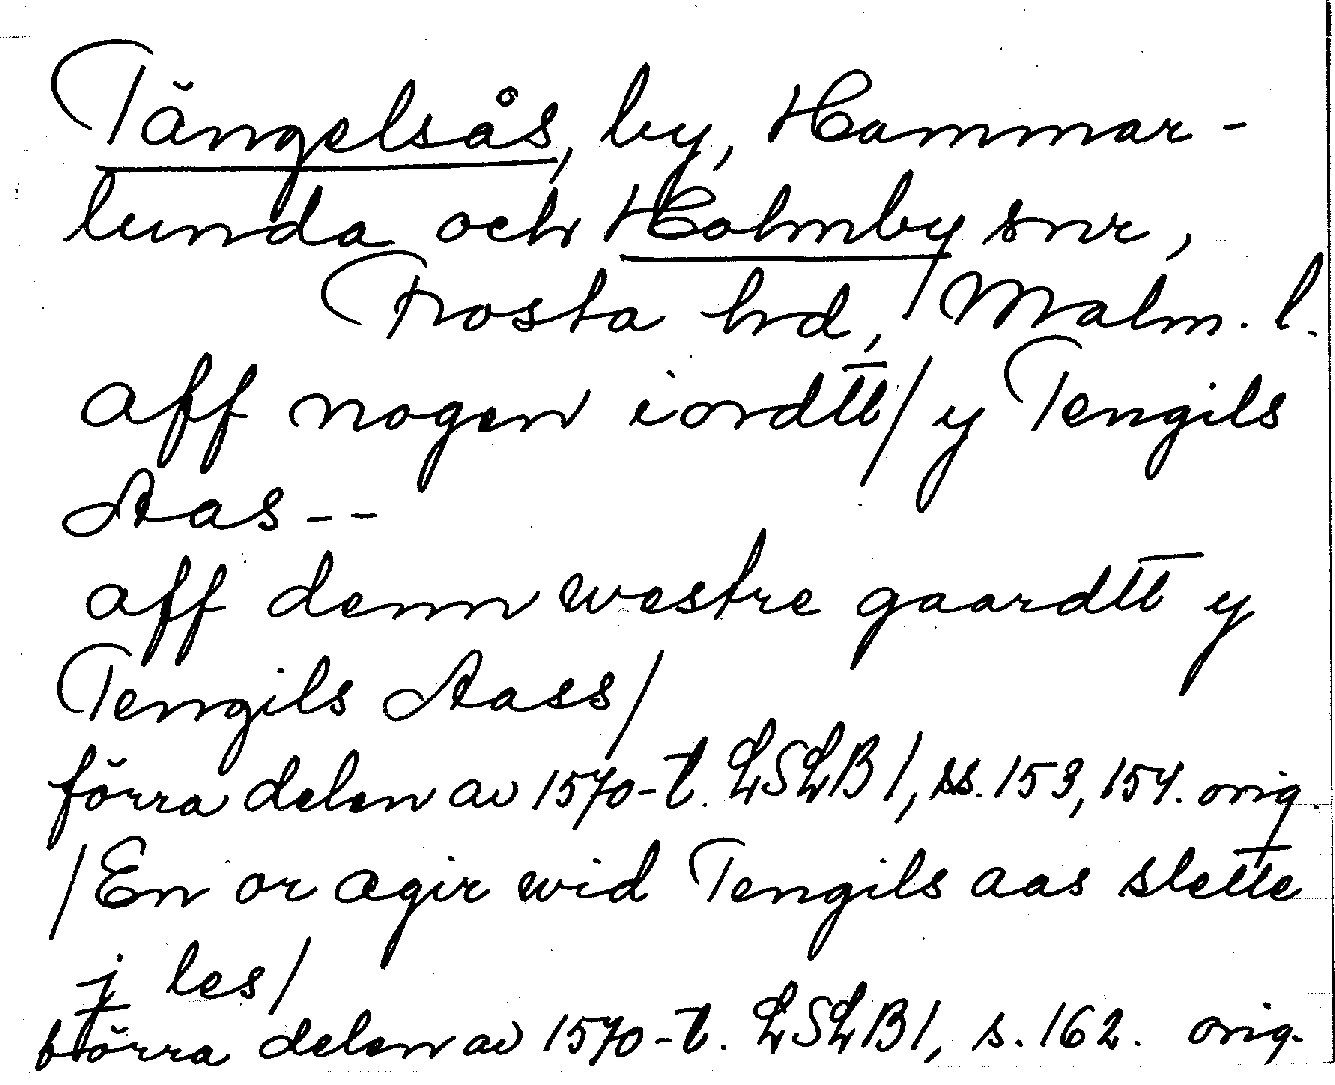 Tängelsås, by, Hammar-
lunda och Holmby snr,
Frosta hrd, Malm. l.
aff nogen iordtt/ y Tengils
Aas --
aff denn westre gaardtt y
Tengils Aass/
förra delen av 1570-t. LSLB 1, ss. 153, 154. orig.
/En or agir wid Tengils aas slette
j les/
förra delen av 1570-t. LSLB 1, s. 162. orig.